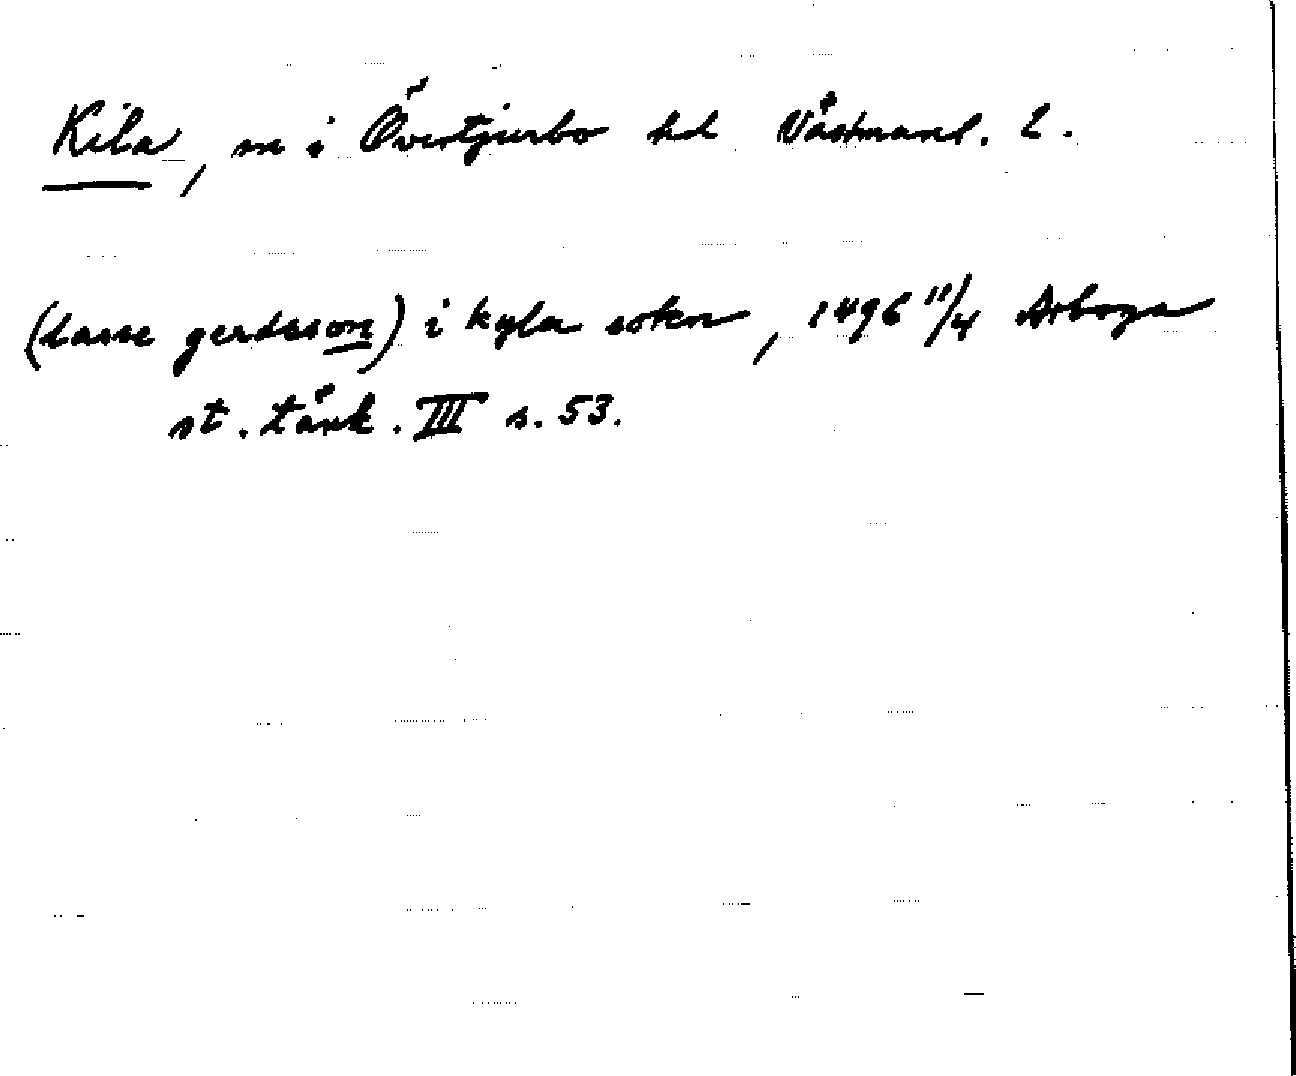 Kila, sn i Övertjurbo hd Västmanl. l.
(lasse gerdsson) i kyla sokn, 1496 11/4 Arboga
st. tänk. III s. 53.